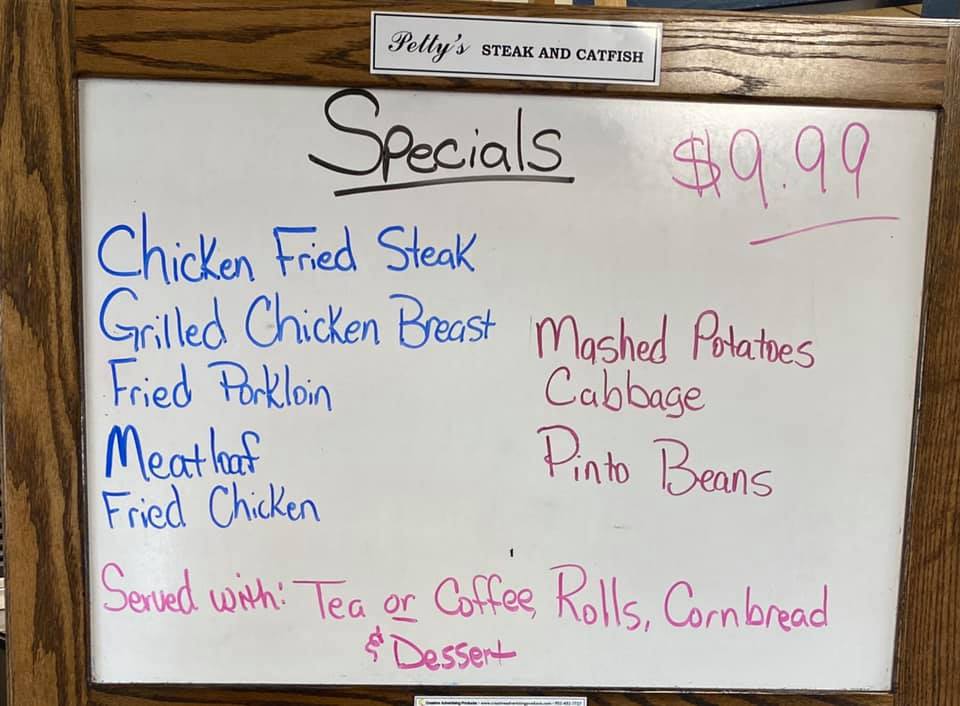 Petty's STEAK AND CATFISH
Specials
$9.99
Chicken Fried Steak
Grilled Chicken Breast
Fried Porkloin
Meatloaf
Fried Chicken
Mashed Potatoes
Cabbage
Pinto Beans
Served with: Tea or Coffee, Rolls, Cornbread
& Dessert